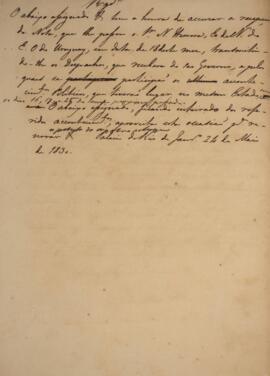 O abaixo assignado & tem a honra de accusar a recepção
da Nota, que lhe passou o Snr N. Herrera, E. do N. do
E. O do Uruguay, em data de 18 deste mez, transmittin-
do-lhe os despachos, que recebera do seu Governo, e pelos
quaes se participão os acconte-
cimtos Politicos, que tiverão lugar no mesmo Estado
O abaixo assignado, ficando inteirado dos refe-
ridos acontecimtos, aproveita esta occasião pa re-
novar &
Palacio do Rio de Janro 24 de Maio
de 1830.